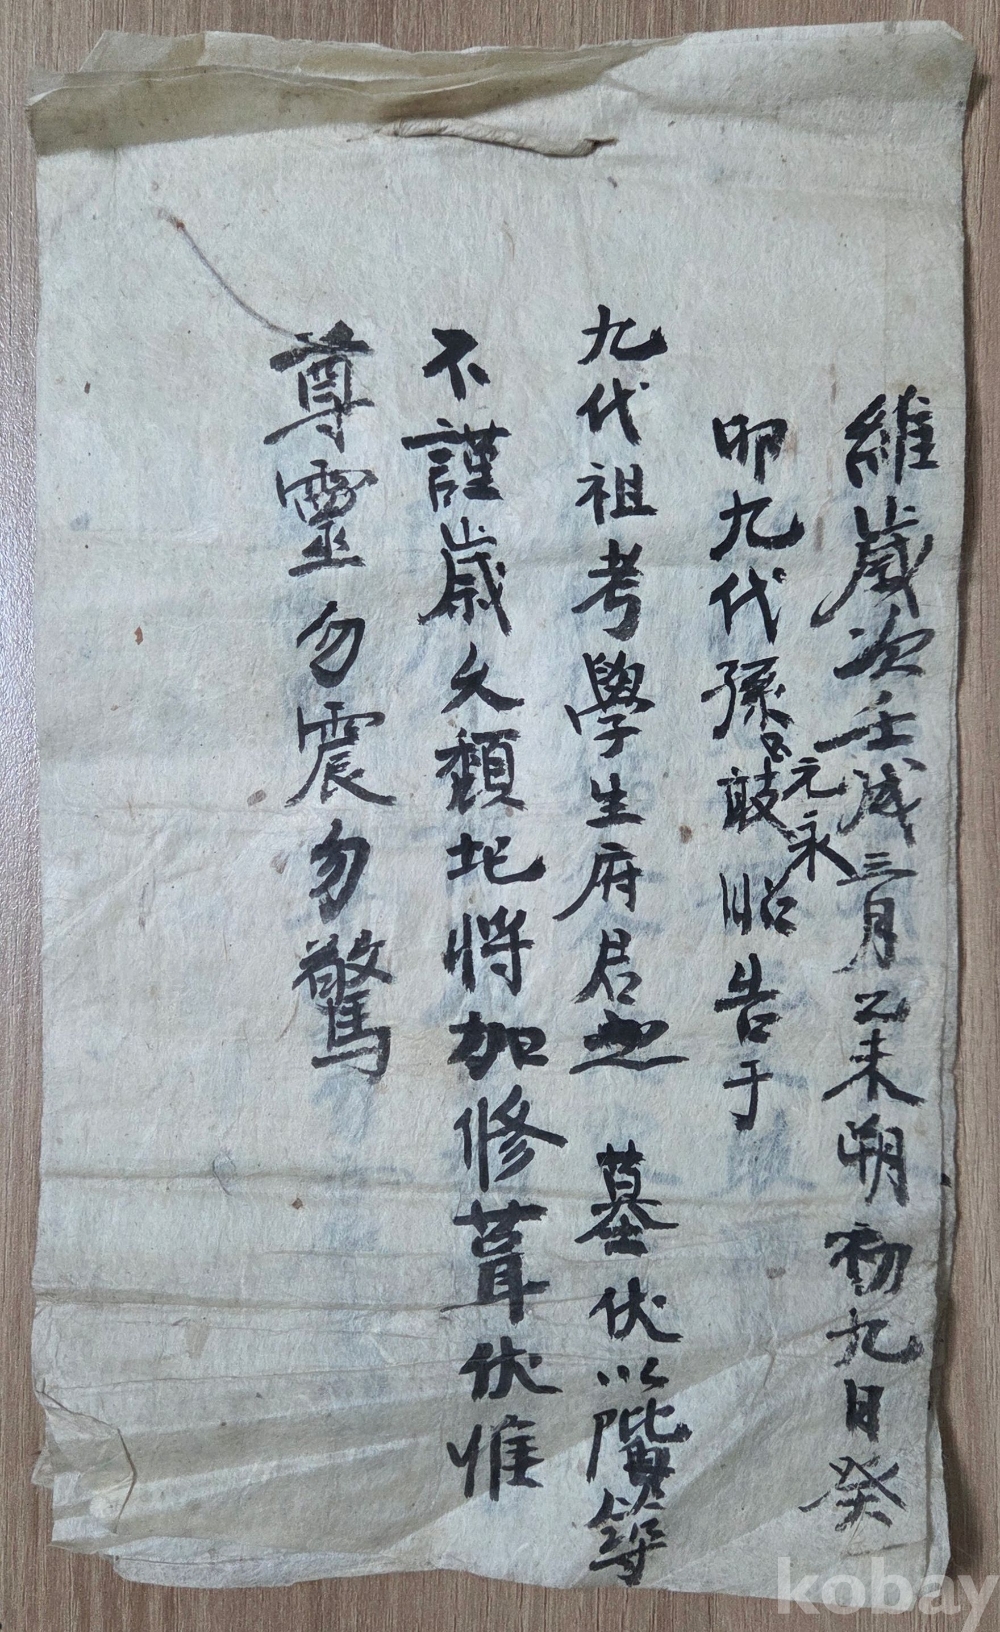 維歲次壬戌三月乙未朔初九日癸
卯九代孫元永敢昭告于
九代祖考學生府君之 墓伏以階等
不謹歲久頹圮將加修葺伏惟
尊靈勿震勿驚
kobay